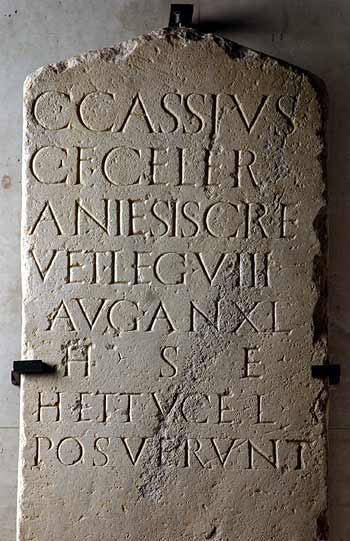 C·CASSIVS
C·F·CELER
ANIESIS CRE
VET LEG VIII
AVG AN XL
H S E
H ET T V C E L
POSVERVNT